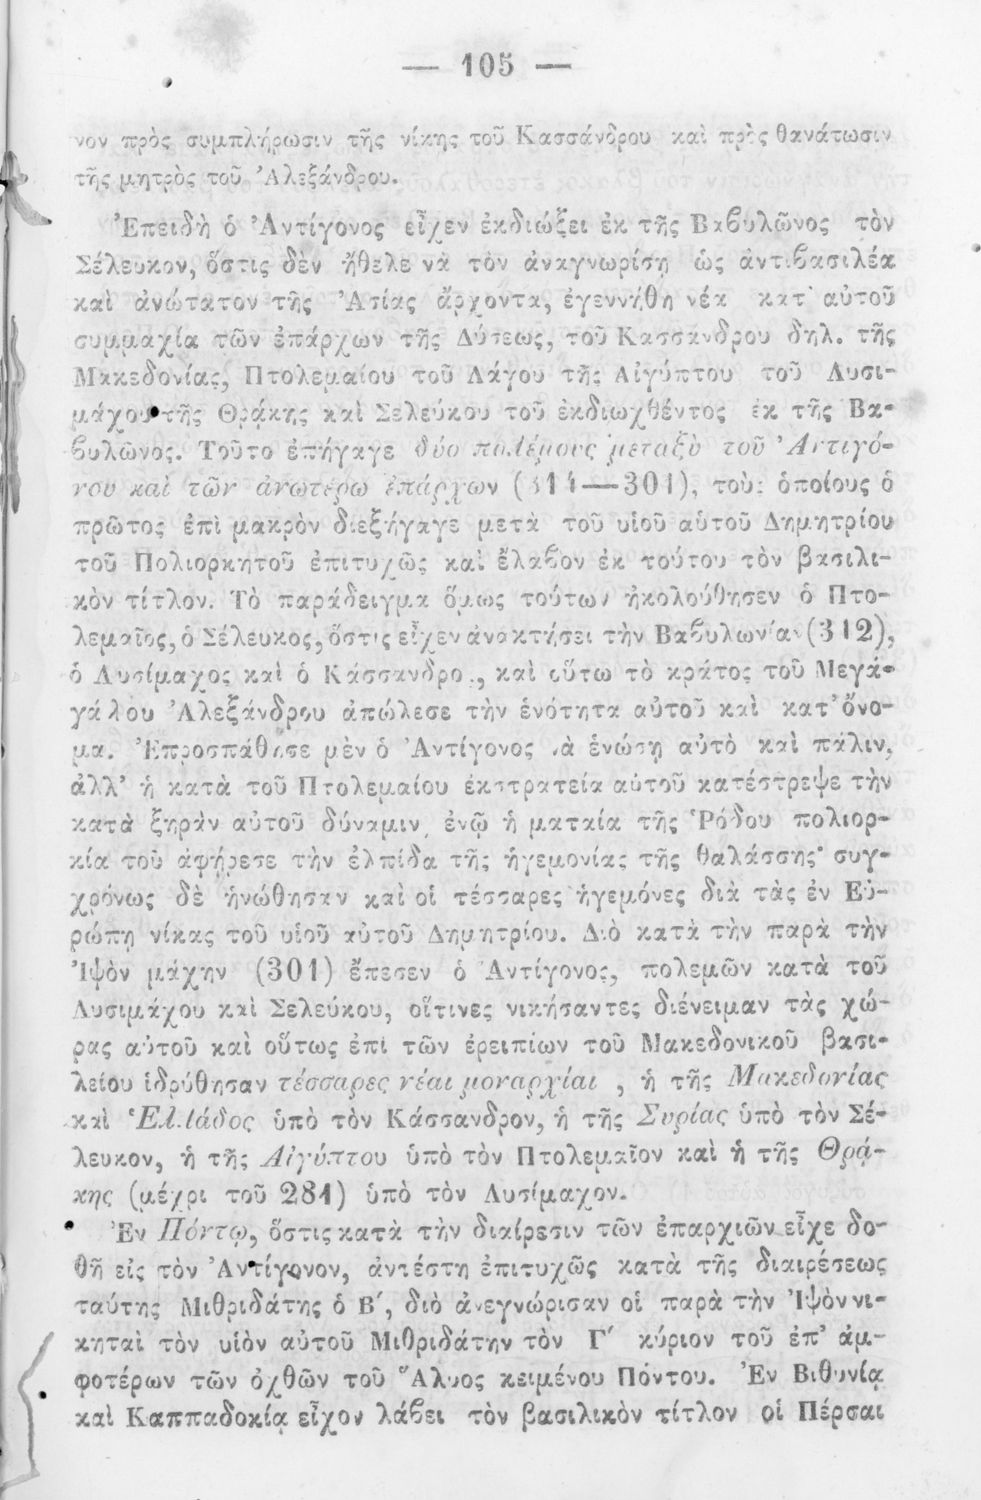 — 105 —
νον πρὸς συμπλήρωσιν τῆς νίκης τοῦ Κασσάνδρου καὶ πρὸς θανάτωσιν
τῆς μητρὸς τοῦ Ἀλεξάνδρου.
Ἐπειδὴ ὁ Ἀντίγονος εἶχεν ἐκδιώξει ἐκ τῆς Βαϐυλῶνος τὸν
Σέλευκον, ὅστις δὲν ἤθελε νὰ τὸν ἀναγνωρίσῃ ὡς ἀντιϐασιλέα
καὶ ἀνώτατον τῆς Ἀσίας ἄρχοντα, ἐγεννήθη νέα κατ' αὐτοῦ
συμμαχία τῶν ἐπάρχων τῆς Δύσεως, τοῦ Κασσάνδρου δηλ. τῆς
Μακεδονίας, Πτολεμαίου τοῦ Λάγου τῆς Αἰγύπτου τοῦ Λυσι-
μάχου τῆς Θρᾴκης καὶ Σελεύκου τοῦ ἐκδιωχθέντος ἐκ τῆς Βα-
ϐυλῶνος. Τοῦτο ἐπήγαγε δύο πολέμους μεταξὺ τοῦ Ἀντιγό-
νου καὶ τῶν ἀνωτέρω ἐπάρχων (314—301), τοὺς ὁποίους ὁ
πρῶτος ἐπὶ μακρὸν διεξήγαγε μετὰ τοῦ υἱοῦ αὑτοῦ Δημητρίου
τοῦ Πολιορκητοῦ ἐπιτυχῶς καὶ ἔλαϐον ἐκ τούτου τὸν βασιλι-
κὸν τίτλον. Τὸ παράδειγμα ὅμως τούτων ἠκολούθησεν ὁ Πτο-
λεμαῖος, ὁ Σέλευκος, ὅστις εἶχεν ἀνακτήσει τὴν Βαϐυλωνίαν (312),
ὁ Λυσίμαχος καὶ ὁ Κάσσανδρος, καὶ οὕτω τὸ κράτος τοῦ Μεγά-
γάλου Ἀλεξάνδρου ἀπώλεσε τὴν ἑνότητα αὐτοῦ καὶ κατ' ὄνο-
μα. Ἐπροσπάθησε μὲν ὁ Ἀντίγονος νὰ ἑνώσῃ αὐτὸ καὶ πάλιν,
ἀλλ' ἡ κατὰ τοῦ Πτολεμαίου ἐκστρατεία αὐτοῦ κατέστρεψε τὴν
κατὰ ξηρὰν αὐτοῦ δύναμιν, ἐνῷ ἡ ματαία τῆς Ῥόδου πολιορ-
κία τοῦ ἀφῄρεσε τὴν ἐλπίδα τῆς ἡγεμονίας τῆς θαλάσσης· συγ-
χρόνως δὲ ἡνώθησαν καὶ οἱ τέσσαρες ἡγεμόνες διὰ τὰς ἐν Εὐ-
ρώπῃ νίκας τοῦ υἱοῦ αὐτοῦ Δημητρίου. Διὸ κατὰ τὴν παρὰ τὴν
Ἰψὸν μάχην (301) ἔπεσεν ὁ Ἀντίγονος, πολεμῶν κατὰ τοῦ
Λυσιμάχου καὶ Σελεύκου, οἵτινες νικήσαντες διένειμαν τὰς χώ-
ρας αὐτοῦ καὶ οὕτως ἐπὶ τῶν ἐρειπίων τοῦ Μακεδονικοῦ βασι-
λείου ἱδρύθησαν τέσσαρες νέαι μοναρχίαι , ἡ τῆς Μακεδονίας
καὶ Ἑλλάδος ὑπὸ τὸν Κάσσανδρον, ἡ τῆς Συρίας ὑπὸ τὸν Σέ-
λευκον, ἡ τῆς Αἰγύπτου ὑπὸ τὸν Πτολεμαῖον καὶ ἡ τῆς Θρᾴ-
κης (μέχρι τοῦ 281) ὑπὸ τὸν Λυσίμαχον.
Ἐν Πόντῳ, ὅστις κατὰ τὴν διαίρεσιν τῶν ἐπαρχιῶν εἶχε δο-
θῆ εἰς τὸν Ἀντίγονον, ἀντέστη ἐπιτυχῶς κατὰ τῆς διαιρέσεως
ταύτης Μιθριδάτης ὁ Β', διὸ ἀνεγνώρισαν οἱ παρὰ τὴν Ἰψὸν νι-
κηταὶ τὸν υἱὸν αὐτοῦ Μιθριδάτην τὸν Γ' κύριον τοῦ ἐπ' ἀμ-
φοτέρων τῶν ὀχθῶν τοῦ Ἅλυος κειμένου Πόντου. Ἐν Βιθυνίᾳ
καὶ Καππαδοκίᾳ εἶχον λάϐει τὸν βασιλικὸν τίτλον οἱ Πέρσαι